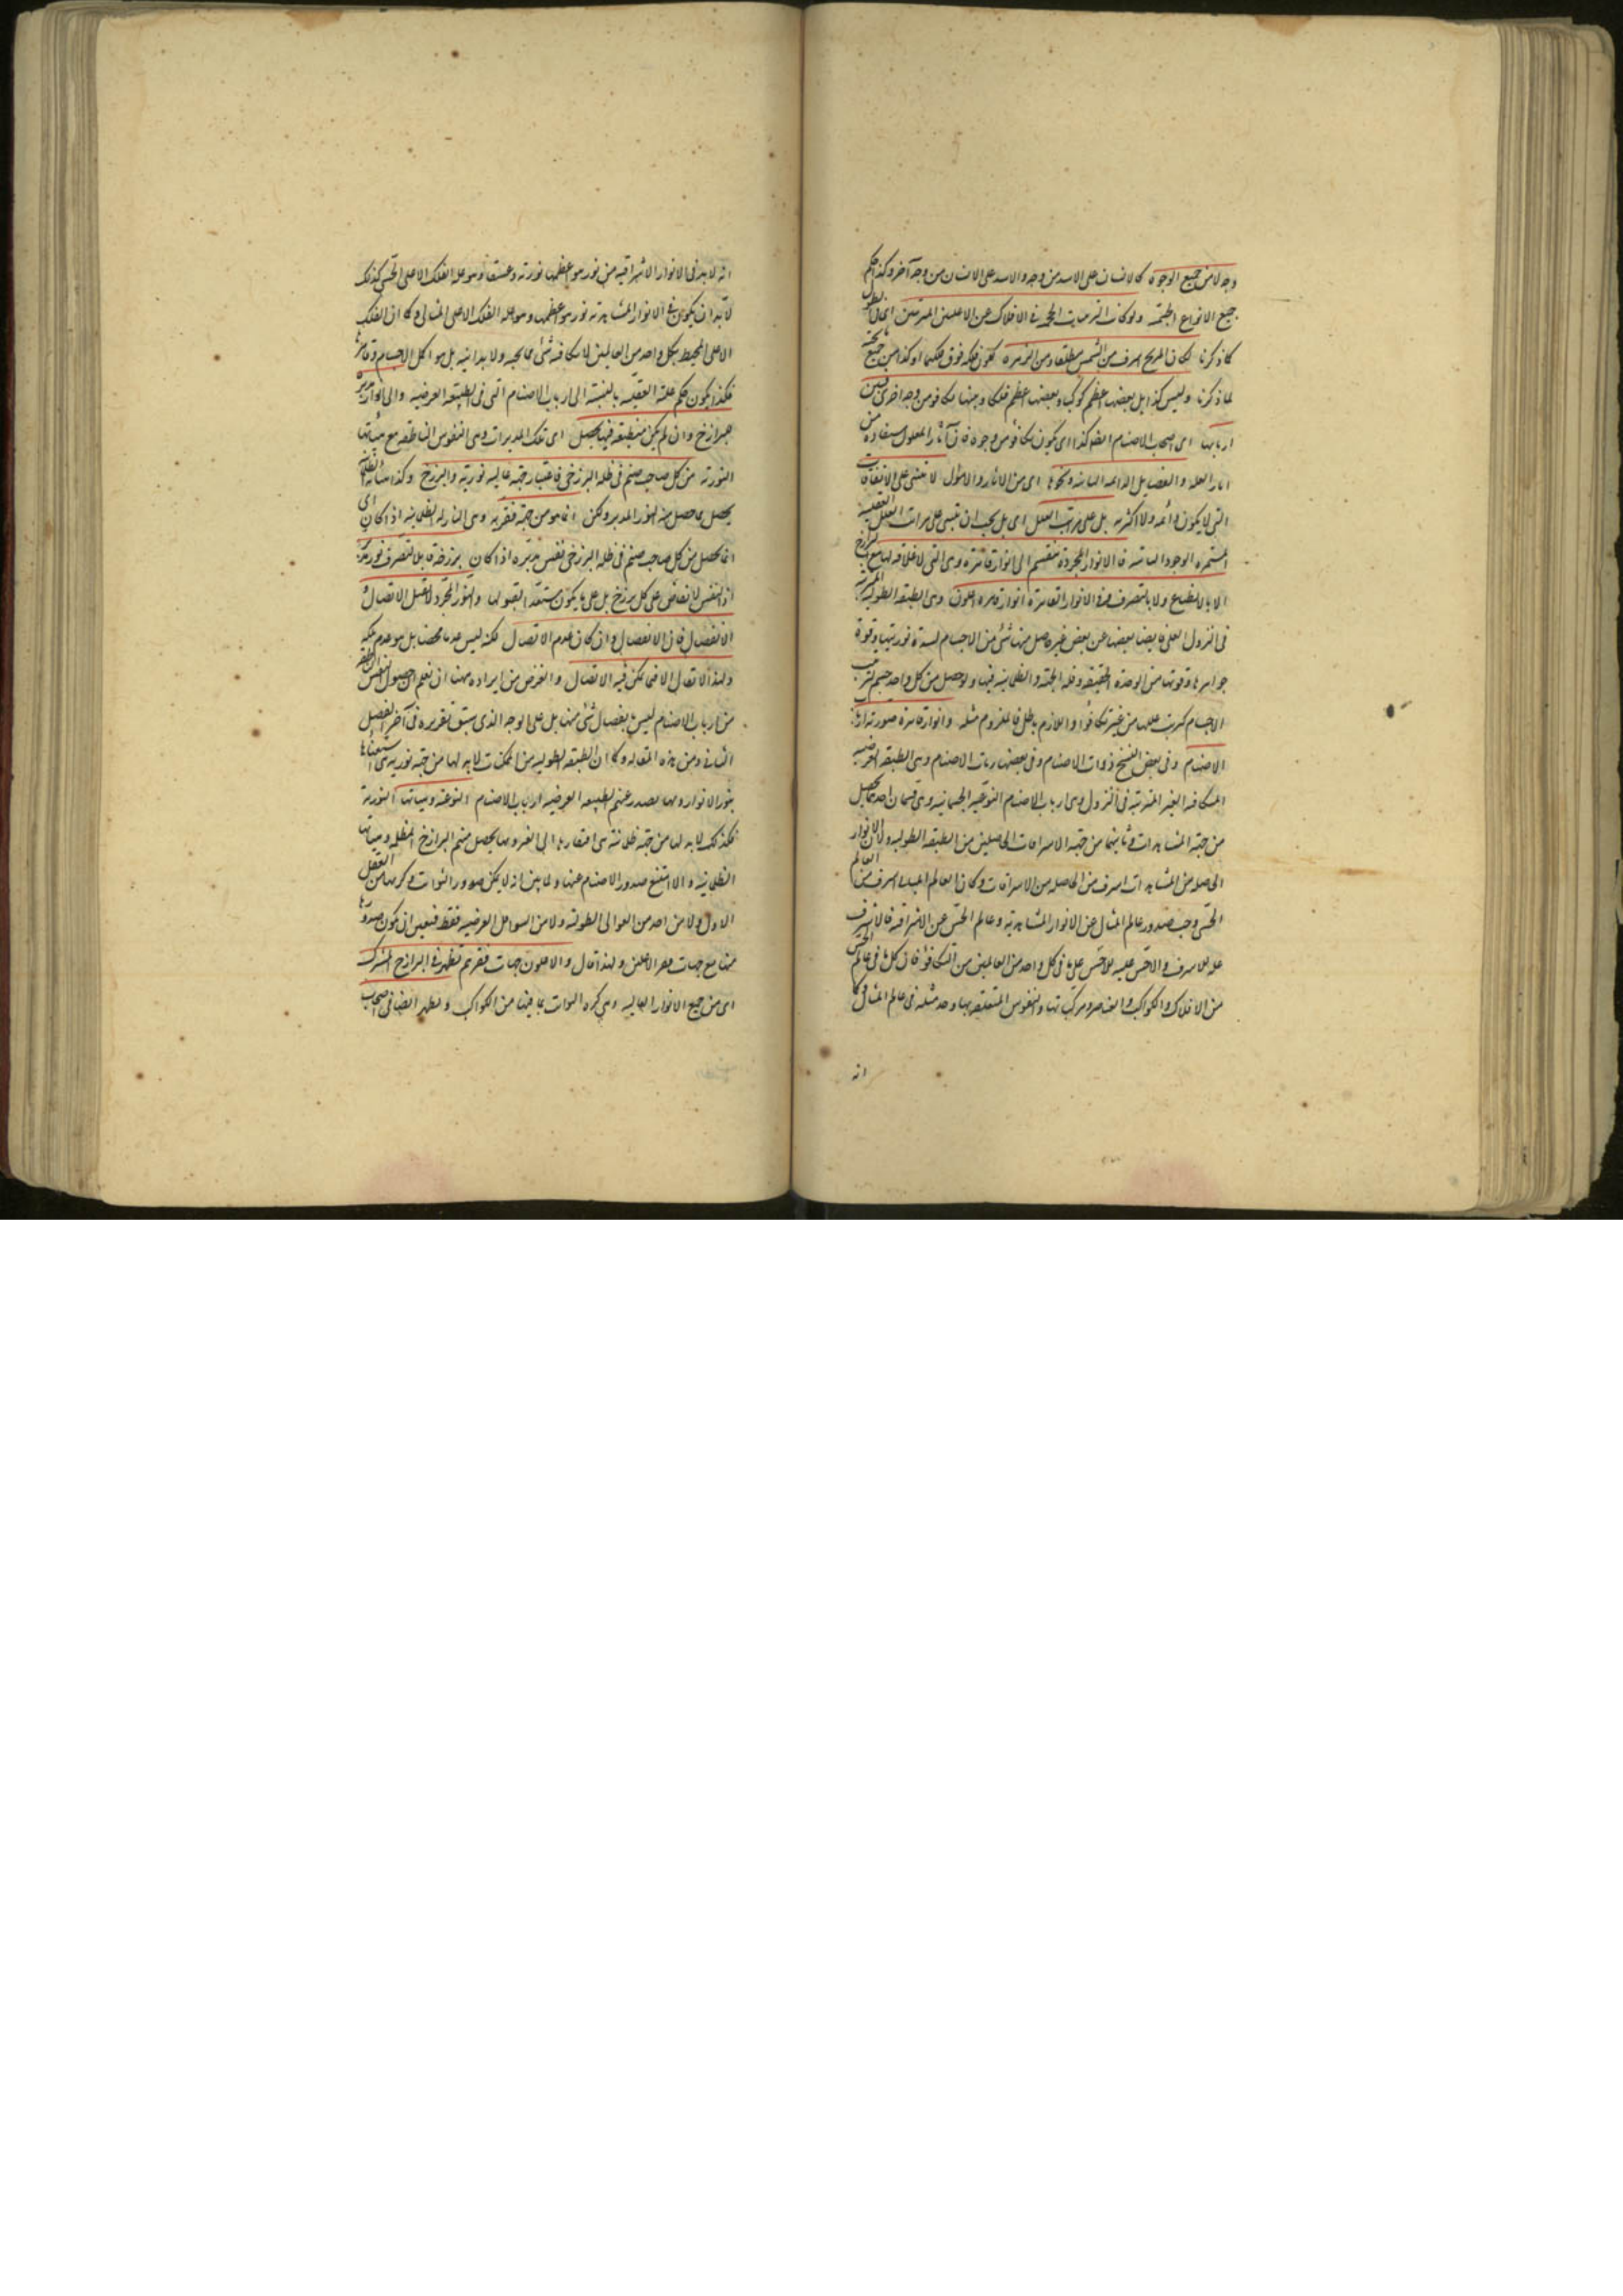 وجه لا من جميع الوجوه كالانسان على الاسد من وجه والاسد على الانسان من وجه آخر وكذا حكم
جميع الانواع الجسمية ولو كانت الترتيبات الحجمية في الافلاك عن الاعلين المترتبين في الطول
كما ذكرنا لكان المريخ اشرف من الشمس مطلقا ومن الزهرة لكون فلكه فوق فلكهما وكذا من جميع
لما ذكرنا وليس كذا بل بعضها اعظم كوكبا وبعضها اعظم فلكا وبينها تكافؤ من وجه اخرى فبين
اربابها اى اصحاب الاصنام ايضا كذا اى يكون تكافؤ من وجوه فان آثار المعلول مستفادة من
آثار العلة والفضايل الدائمة الثابتة ونحوها اى من الآثار والاحوال لا تبتنى على الاتفاقات
التى لا يكون دائمة ولا اكثرية بل على مراتب العلل اى بل يجب ان تبتنى على مراتب العلل العقلية
المستمرة الوجود الثابتة فالانوار المجردة تنقسم الى انوار قاهرة وهى التى لا علاقة لها مع البرازخ
لا بالانطباع ولا بالتصرف وفى الانوار القاهرة انوار قاهرة اعلون وهى الطبقة الطولية المترتبة
فى النزول العلى فايضا بعضها عن بعض غير حاصل منها شئ من الاجسام لشدة نوريتها وقوة
جواهرها وقوتها من الوحدة الحقيقية وقلة الجهة والظلمانية فيها ولو حصل من كل واحد جسم لترتبت
الاجسام كترتب عللها من غير تكافؤ واللازم باطل فالملزوم مثله وانوار قاهرة صورية ارباب
الاصنام وفى بعض النسخ ذوات الاصنام وفى بعضها ربات الاصنام وهى الطبقة العرضية
المتكافئة الغير المترتبة فى النزول وهى ارباب الاصنام النوعية الجسمانية وهى قسمان احدهما يحصل
من جهة المشاهدات وثانيهما من جهة الاشراقات الحاصلين من الطبقة الطولية ولان الانوار
الحاصلة من المشاهدات اشرف من الحاصلة من الاشراقات وكان العالم المثالى اشرف من العالم
الحسى وجب صدور عالم المثال عن الانوار المشاهدية وعالم الحس عن الاشراقية فالاشرف
علة للاشرف والاخس علة للاخس على ما فى كل واحد من العالمين من التكافؤ فان كل ما فى عالم الحس
من الافلاك والكواكب والعناصر ومركباتها والنفوس المتعلقة بها يوجد مثله فى عالم المثال وكما
انه
انه لا بد فى الانوار الاشراقية من نور هو اعظمها نورية وعشقا وهو علة الفلك الاعلى الحسى كذلك
لابد ان يكون فى الانوار المشاهدية نور هو اعظمها وهو علة الفلك الاعلى المثالى وكما ان الفلك
الاعلى المحيط بكل واحد من العالمين لا يكافئه شئ مما تحته ولا يدانيه بل هو اكمل الاجسام وقاهرها
فكذا يكون حكم علته العقلية بالنسبة الى ارباب الاصنام التى فى الطبقة العرضية والى انوار مدبرة
للبرازخ وان لم يكن منطبعة فيها يحصل اى تلك المدبرات وهى النفوس الناطقة مع هيئاتها
النورية من كل صاحب صنم فى ظله البرزخى باعتبار جهة عالية نورية والبرزخ وكذا هيئاته الظلمانية
يحصل مما حصل منه النور المدبر ولكن انما هو من جهة فقرية وهى النازلة الظلمانية اذا كان اى
انما يحصل من كل صاحب صنم فى ظله البرزخى نفس مدبرة اذا كان برزخه قابلا لتصرف نور مدبر
اذ النفس لا تفاض على كل برزخ بل على ما يكون مستعدا لقبولها والنور المجرد لا يقبل الاتصال و
الانفصال فان الانفصال وان كان عدم الاتصال لكنه ليس عدما محضا بل هو عدم ملكة
ولهذا لا يقال الا فيما يمكن فيه الاتصال والغرض من ايراده هنا ان تعلم ان حصول النفس الناطقة
من ارباب الاصنام ليس بانفصال شئ منها بل على الوجه الذى سبق تقريره فى آخر الفصل
الثانى من هذه المقالة وكما ان الطبقة الطولية من الممكنات لا بد لها من جهة نورية هى استغناءها
بنور الانوار وبها يصدر عنهم الطبقة العرضية ارباب الاصنام النوعية وهيئاتها النورية
فكذلك لا بد لها من جهة ظلمانية هى افتقارها الى الغير وبها يحصل منهم البرازخ المظلمة وهيئاتها
الظلمانية والا امتنع صدور الاصنام عنها ولما بين انه لا يمكن صدور الثوابت وكرتها من العقل
الاول ولا من احد من العوالى الطولية ولا من السوافل العرضية فقط فتعين ان يكون صدورها
منها مع جهات فقر الاعلين ولهذا قال والاعلون جهات فقرهم تظهر فى البرازخ المشترك
اى من جميع الانوار العالية وهى كرة الثوابت بما فيها من الكواكب وتظهر ايضا فى اصحاب